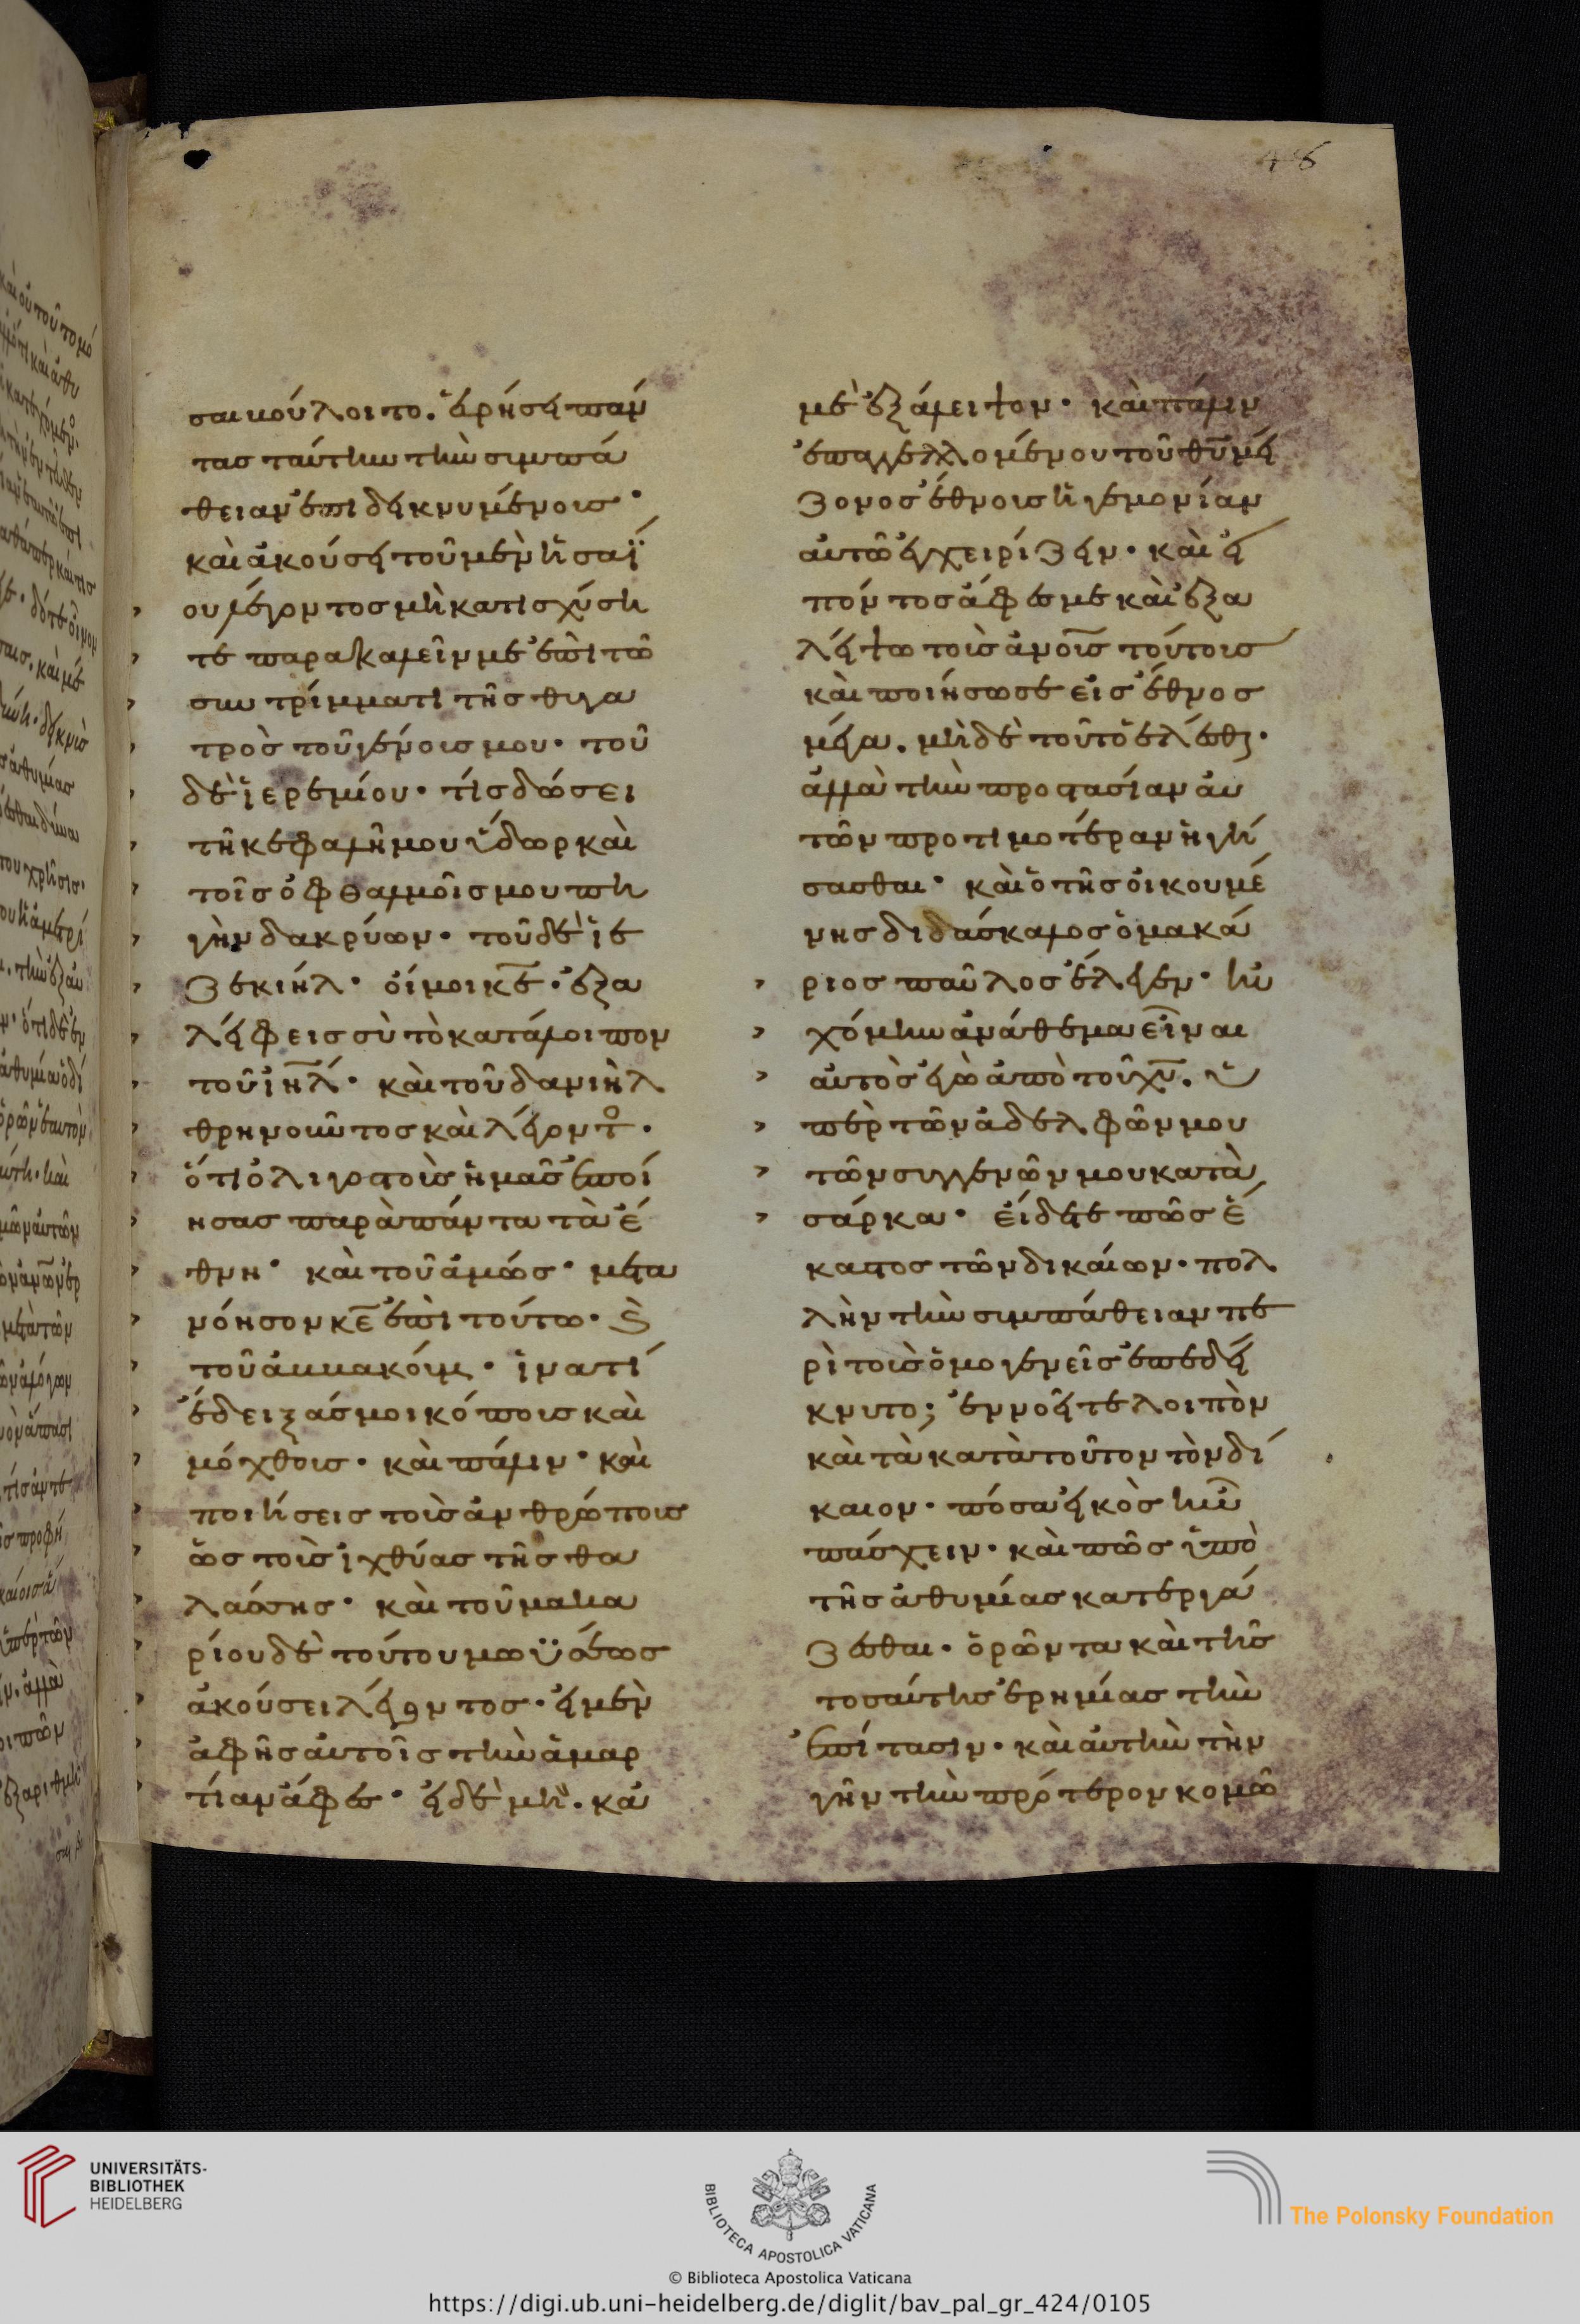 46
σαι βούλοιτο. εὑρήσει πάν
τας ταύτην τὴν συμπά
θειαν ἐπιδεικνυμένους·
καὶ ἀκούσει τοῦ μὲν ἡσαΐ
ου λέγοντος μὴ κατισχύση
τε παρακαλεῖν με ἐπὶ τῶ
συντρίμματι τῆς θυγα
τρὸς τοῦ γένους μου· τοῦ
δὲ ἱερεμίου· τίς δώσει
τῆ κεφαλῆ μου ὕδωρ καὶ
τοῖς ὀφθαλμοῖς μου πη
γὴν δακρύων· τοῦ δὲ ἰε
ζεκιήλ· οἴμοι κε· ἐξα
λείφεις σὺ τὸ κατάλοιπον
τοῦ ιηλ· καὶ τοῦ δανιὴλ
θρηνοῦντος καὶ λέγοντο·
ὅτι ὀλιγοστοὺς ἡμᾶς ἐποί
ησας παρὰ πάντα τὰ ἔ
θνη· καὶ τοῦ ἀμώς· μετα
νόησον κε ἐπὶ τούτω· ϛ
τοῦ ἀμβακούμ· ἱνατί
ἔδειξάς μοι κόπους καὶ
μόχθους· καὶ πάλιν· καὶ
ποιήσεις τοὺς ἀνθρώπους
ὡς τοὺς ἰχθύας τῆς θα
λάσσης· καὶ τοῦ μακα
ρίου δὲ τούτου μωϋσέως
ἀκούσει λέγοντος· εἰ μὲν
ἀφῆς αὐτοῖς τὴν ἁμαρ
τίαν ἄφες· εἰ δὲ μή. κἀ
μὲ ἐξάλειψον· καὶ πάλιν
ἐπαγγελλομένου τοῦ θυ μεί
ζονος ἔθνους ἡγεμονίαν
αὐτῶ ἐγχειρίζειν· καὶ εἰ
πόντος ἄφες με καὶ ἐξα
λείψω τοὺς ανους τούτους
καὶ ποιήσω σε εἰς ἔθνος
μέγα. μὴ δὲ τοῦτο ἑλέσθαι·
ἀλλὰ τὴν προστασίαν αὐ
τῶν προτιμοτέραν ἡγή
σασθαι· καὶ ὁ τῆς οἰκουμέ
νης διδάσκαλος ὁ μακά
ριος παῦλος ἔλεγεν· ηὐ
χόμην ἀνάθεμα εἶναι
αὐτὸς ἐγὼ ἀπὸ τοῦ χυ. ὑ
πὲρ τῶν ἀδελφῶν μου
τῶν συγγενῶν μου κατὰ
σάρκα· εἴδετε πῶς ἕ
καστος τῶν δικαίων· πολ
λὴν τὴν συμπάθειαν πε
ρὶ τοὺς ὁμογενεῖς ἐπεδεί
κνυτο; ἐννοεῖτε λοιπὸν
καὶ τὰ κατὰ τοῦτον τὸν δί
καιον· πόσα εἰκὸς ἦν
πάσχειν· καὶ πῶς ὑπὸ
τῆς ἀθυμίας κατεργά
ζεσθαι· ὁρῶντα καὶ τῆς
τοσαύτης ἐρημίας τὴν
ἐπίτασιν· καὶ αὐτὴν τὴν
γῆν τὴν πρότερον κομῶ
UNIVERSITÄTS-
BIBLIOTHEK
HEIDELBERG
BIBLIOTECA APOSTOLICA VATICANA
The Polonsky Foundation
© Biblioteca Apostolica Vaticana
https://digi.ub.uni-heidelberg.de/diglit/bav_pal_gr_424/0105